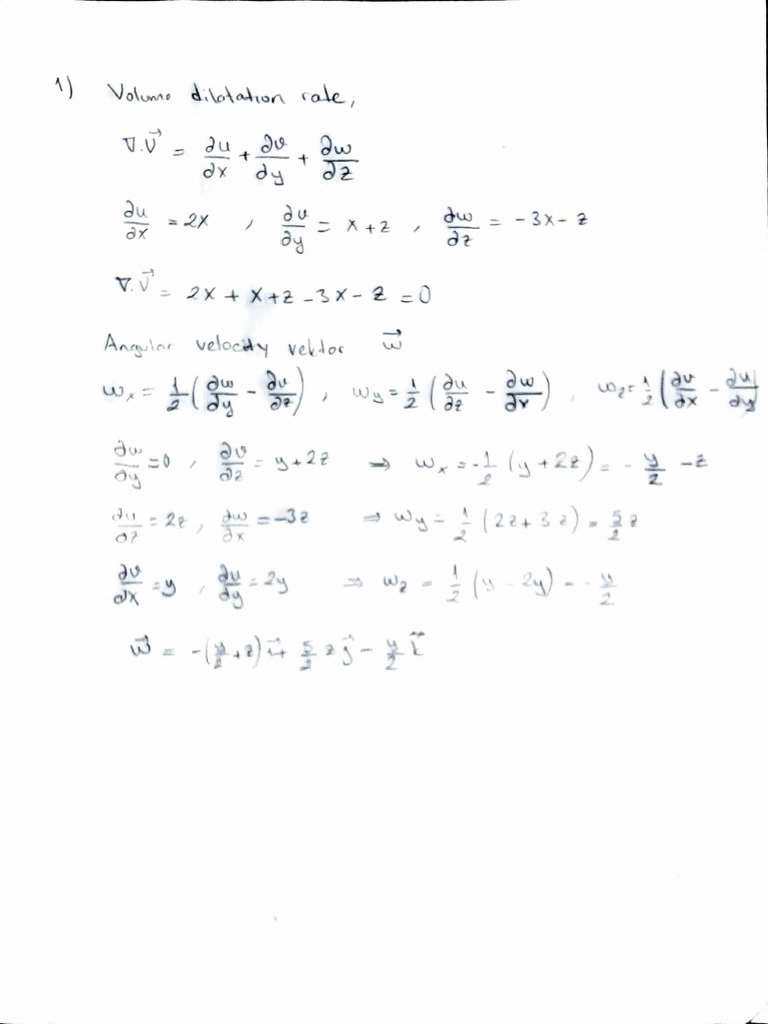 1) Volume dilatation rate,
∇.V⃗ = ∂u/∂x + ∂v/∂y + ∂w/∂z
∂u/∂x = 2x , ∂v/∂y = x+z , ∂w/∂z = -3x-z
∇.V⃗ = 2x + x+z -3x-z =0
Angular velocity vektor w⃗
wx = 1/2 (∂w/∂y - ∂v/∂z) , wy = 1/2 (∂u/∂z - ∂w/∂x) , wz = 1/2 (∂v/∂x - ∂u/∂y)
∂w/∂y =0 , ∂v/∂z = y+2z ⇒ wx = -1/2 (y+2z) = - y/2 -z
∂u/∂z = 2z , ∂w/∂x = -3z ⇒ wy = 1/2 (2z+3z) = 5/2 z
∂v/∂x = y , ∂u/∂y = 2y ⇒ wz = 1/2 (y-2y) = - y/2
w⃗ = -(y/2 +z) i⃗ + 5/2 z j⃗ - y/2 k⃗